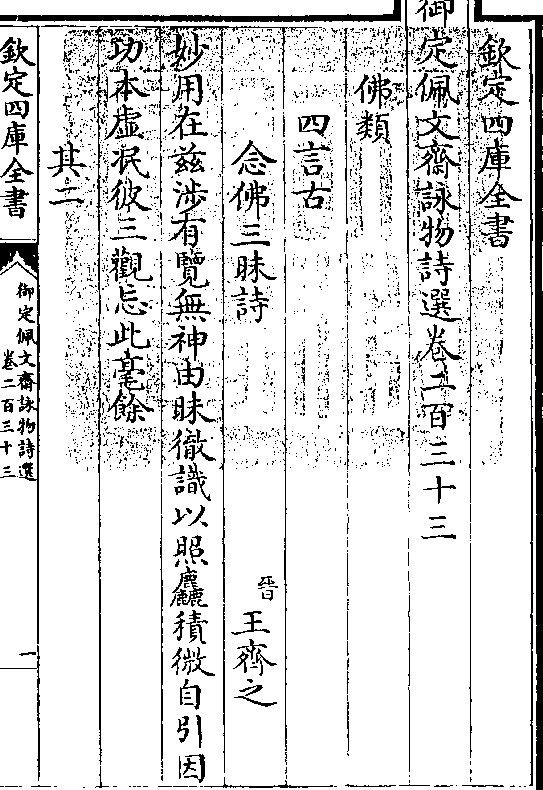 欽定四庫全書
御定佩文齋詠物詩選卷二百三十三
佛類
四言古
念佛三昧詩 晉 王齊之
妙用在兹涉有覽無神由昧徹識以照麤積微自引因
功本虛泯彼三觀忘此毫餘
其二
欽定四庫全書
御定佩文齋詠物詩選
卷二百三十三
一